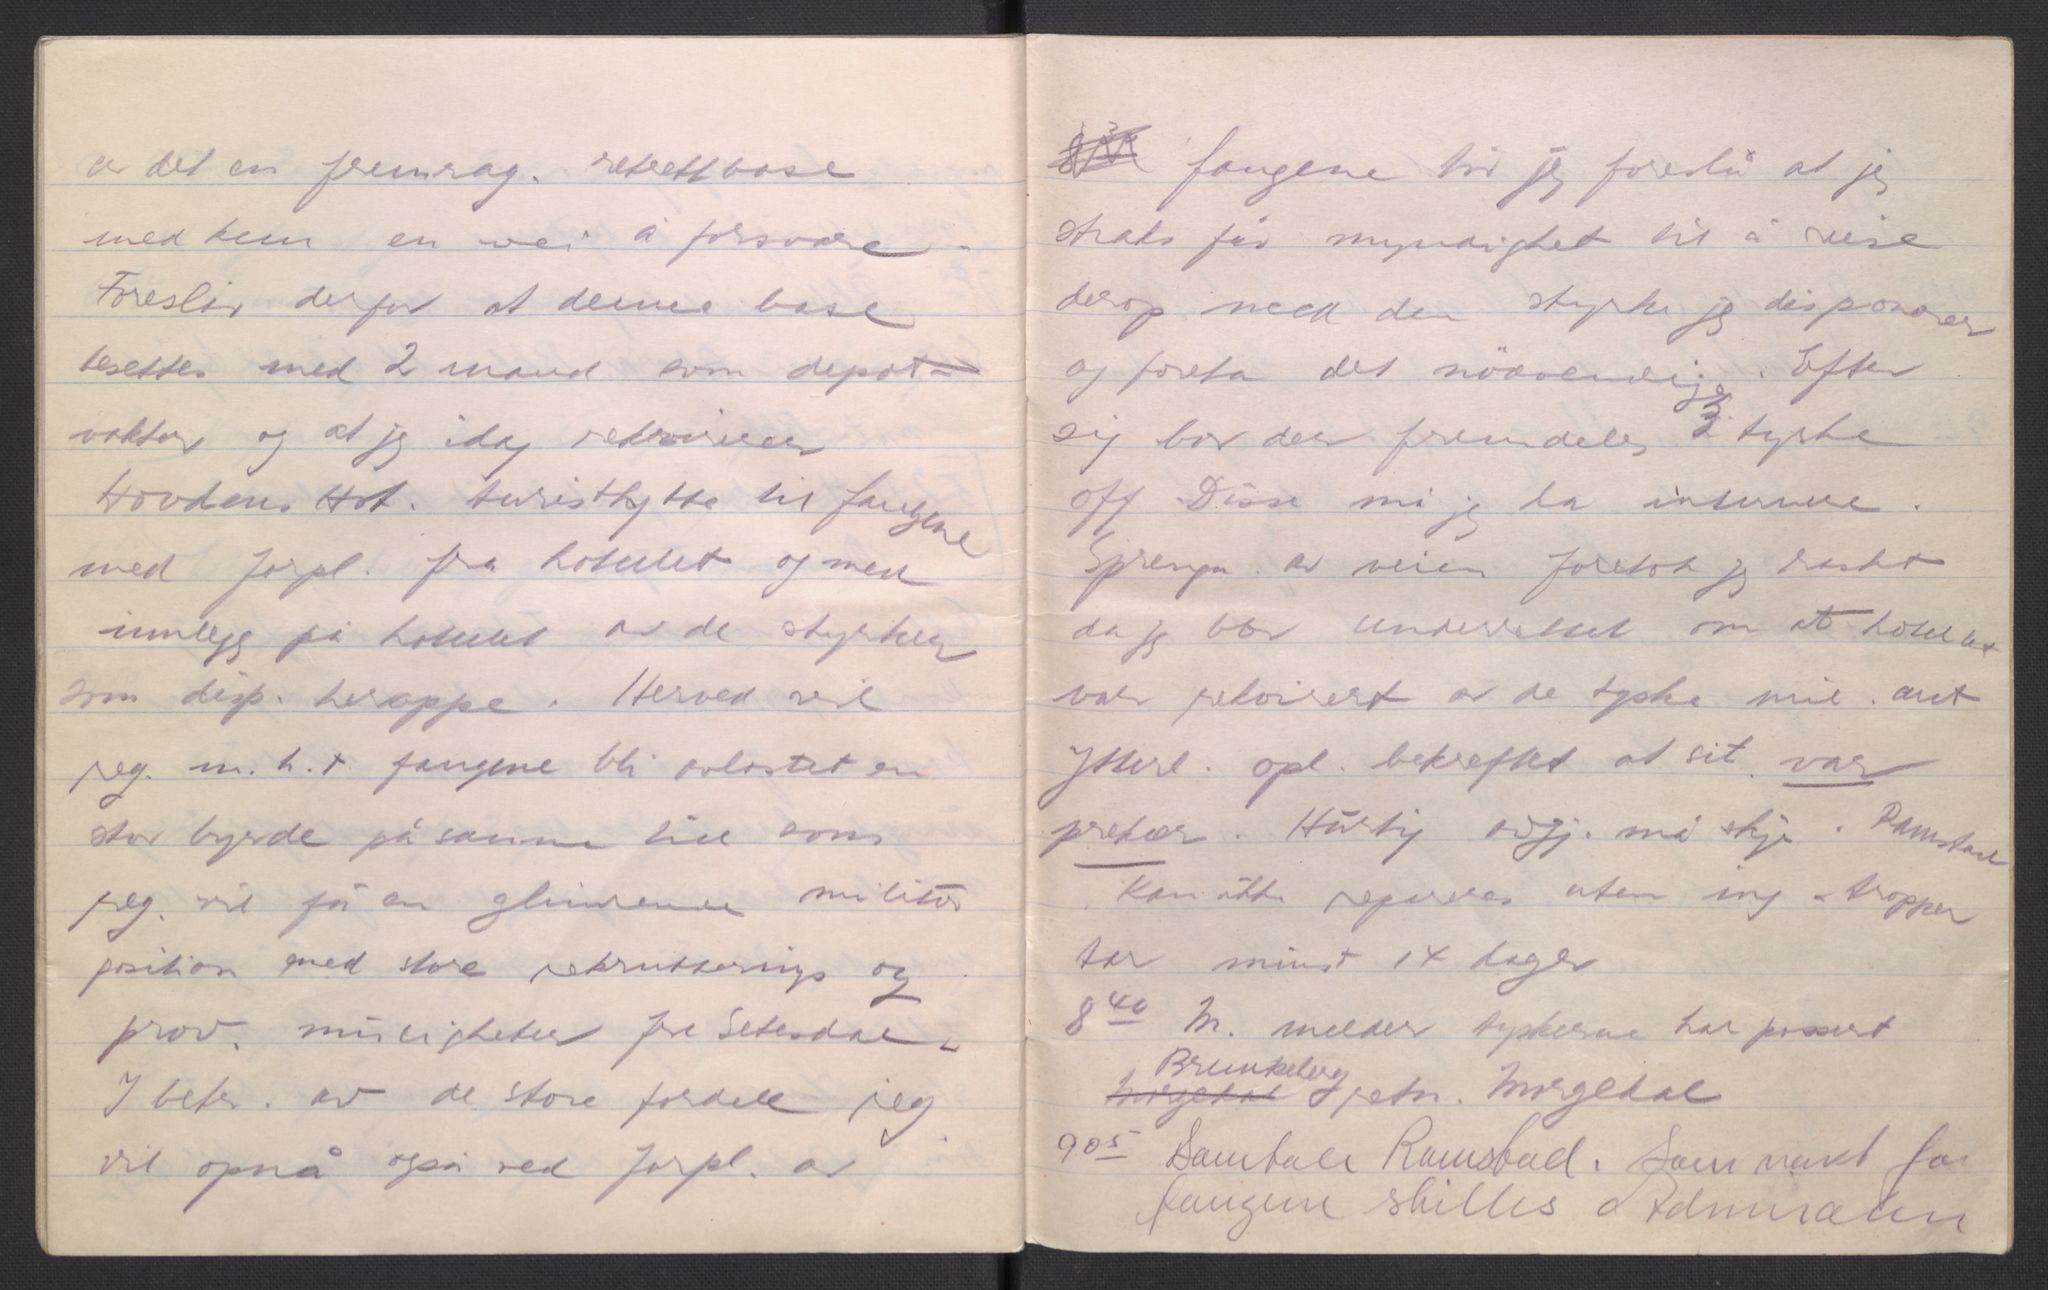 er det en fremrag. retrettbase
med kun en vei å forsvare.
Foreslår derfor at denne base
besettes med 2 mand som depot-
vakter og at jeg idag rekvirerer
Hovdens Hot. turisthytte til fangene
med forpl. fra hotellet og med
innlegg på hotellet av de styrker
som disp. heroppe. Herved vil
jeg m.h.t. fangene bli avlastet en
stor byrde på samme tid som
jeg vil få en glimrende militær
position med store rekrutterings og
prov. muligheter fra Setesdal.
I betr. av de store fordele jeg
vil opnå også ved forpl. av
fangene tør jeg foreslå at jeg
straks får myndighet til å reise
derop med den styrke jeg disponerer
og foreta det nødvendige. Efter
sig bor der fremdeles 3 tyske
off. Disse må jeg da internere.
Sprengn. av veien foretok jeg raskt
da jeg blev underrettet om at hotellet
var rekvirert av de tyske mil. aut
Ytterl. opl. bekreftet at sit. var
prekær. Hurtig avgj. må skje. Ramstad
Kan ikke repareres uten ing-tropper
tar minst 14 dager
8 40 M. melder tyskerne har passert
Brunkeberg
Morgedal retn. Morgedal
9 05 Samtale Ramstad. Som vakt for
fangene stilles